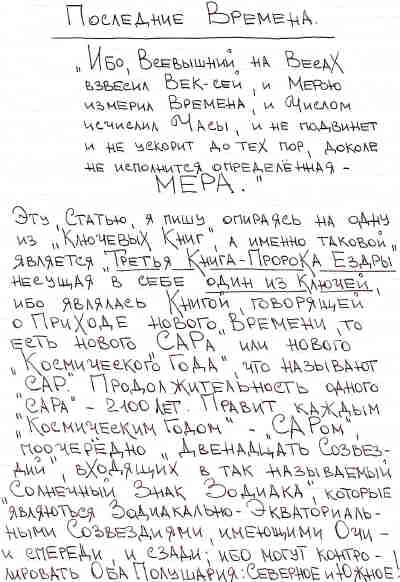 Последние Времена.
„Ибо, Всевышний на Весах
взвесил Век-сей, и Мерою
измерил Времена, и Числом
исчислил Часы, и не подвинет
и не ускорит до тех пор, доколе
не исполнится определённая –
МЕРА."
Эту „Статью", я пишу опираясь на одну
из „Ключевых Книг", а именно таковой
является „Третья Книга-Пророка Ездры"
несущая в себе один из Ключей,
ибо являлась Книгой, говорящей
о Приходе Нового „Времени, то
есть нового САРа или нового
„Космического Года", что называют
„САР". Продолжительность одного
„САРА" – 2100 лет. Правит каждым
„Космическим Годом" – „САРом",
поочерёдно „Двенадцать Созвез-
дий", входящих в так называемый
„Солнечный Знак Зодиака", которые
являються Зодиакально-Экваториаль-
ными Созвездиями, имеющими Очи –
и спереди, и сзади; ибо могут контро- !
лировать Оба Полушария: Северное и Южное!